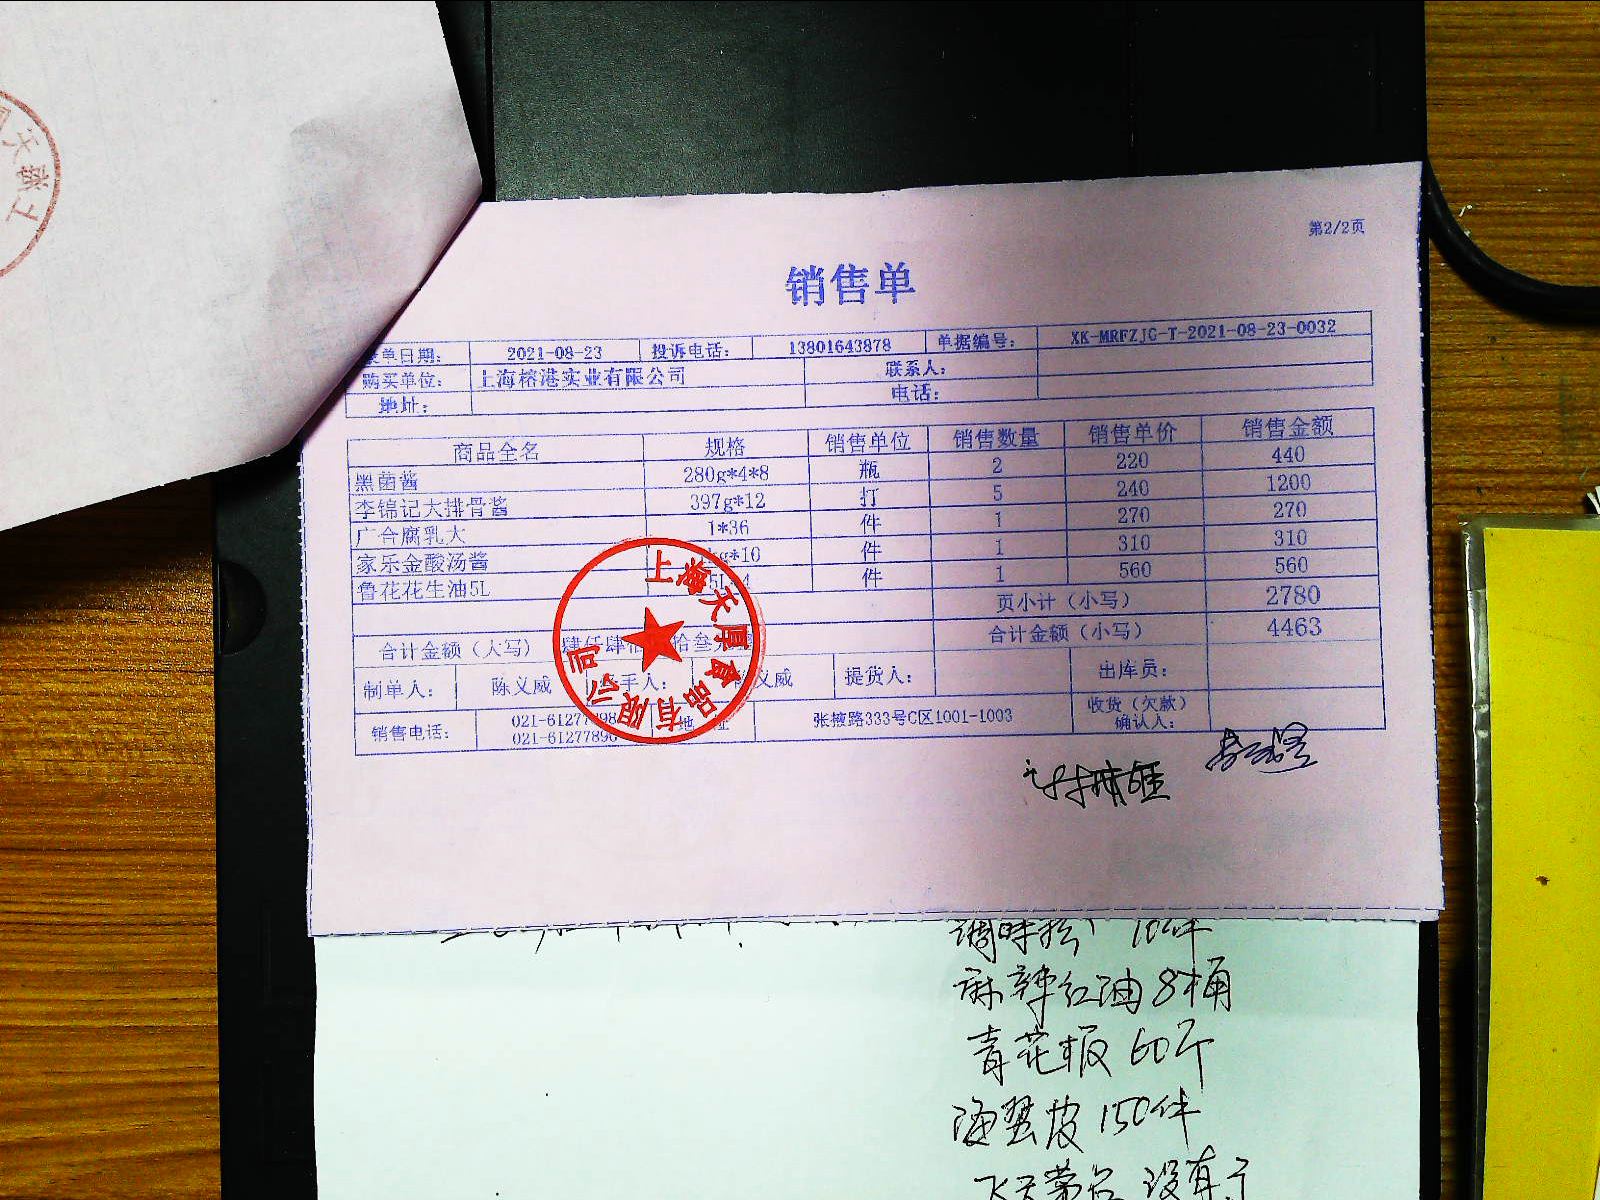 第2/2页
销售单
录单日期： 2021-08-23 投诉电话： 13801643878 单据编号： XK-MRFZJG-T-2021-08-23-0032
购买单位： 上海榕港实业有限公司 联系人：
地址： 电话：
商品全名 规格 销售单位 销售数量 销售单价 销售金额
黑菌酱 280g*4*8 瓶 2 220 440
李锦记大排骨酱 397g*12 打 5 240 1200
广合腐乳大 1*36 件 1 270 270
家乐金酸汤酱 kg*10 件 1 310 310
鲁花花生油5L 件 1 560 560
页小计（小写） 2780
合计金额（大写） 肆仟肆 拾叁 合计金额（小写） 4463
制单人： 陈义威 手人： 义威 提货人： 出库员：
销售电话： 021-61277 98 地 址 张掖路333号C区1001-1003 收货（欠款）
021-6127789 确认人：
上海天厚食品有限公司
调味 10件
麻辣红油 8桶
青花椒 60斤
海蜇皮 150件
没有了